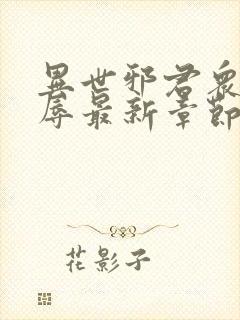 異世邪君眾
辱最新章節
花影子